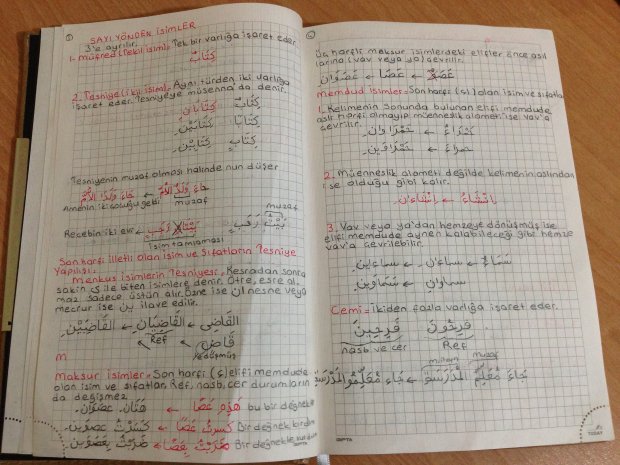 SAYI YÖNDEN İSİMLER
3'e ayrılır.
1. Müfred (Tekil isim). Tek bir varlığa işaret eder
كِتَابٌ
2. Tesniye (ikil isim). Aynı türden iki varlığa
işaret eder. Tesniyeye müsenna da denir.
كِتَابٌ ← كِتَابَانِ
كِتَابًا ← كِتَابَيْنِ
كِتَابٍ ← كِتَابَيْنِ
Tesniyenin muzaf olması halinde nun düşer
جَاءَ وَلَدَا الْأُمِّ ← جَاءَ وَلَدُ الْأُمِّ
Annenin iki çocuğu geldi muzaf
muzaf
Recebin iki evi ← بَيْتَا رَجَبٍ ← بَيْتُ رَجَبٍ
isim tamlaması
Son harfi illetli olan isim ve sıfatların Tesniye
Yapılışı.
Menkus isimlerin Tesniyesi. Kesradan sonra
sakin ي ile biten isimlere denir. Ötre, esre al-
maz sadece üstün alır. Özne ise ان nesne veya
mecrur ise ين ilave edilir.
القَاضِي ← القَاضِيَانِ ← القَاضِيَيْنِ
قَاضٍ Ref
ي düşmüş
m
Maksur isimler. Son harfi elifi memdude
olan isim ve sıfatlar. Ref, nasb, cer durumların
da değişmez
bu bir değnek هَذِهِ عَصًا ← هَتَانِ عَصَوَانِ
Bir değnek kırdım كَسَرْتُ عَصًا ← كَسَرْتُ عَصَوَيْنِ
Bir değnekle vurdum ضَرَبْتُ بِعَصًا ← ضَرَبْتُ بِعَصَوَيْنِ
Üç harfli maksur isimlerdeki elifler önce asıl
larına (vav veya ya) çevrilir.
عَصَوٌ ← عَصًا ← عَصَوَانِ
Memdud isimler. Son harfi (اء) olan isim ve sıfatlar
1. Kelimenin sonunda bulunan elifi memdude
aslı harfi olmayıp müenneslik alameti ise vav'a
çevrilir.
حَمْرَاءُ ← حَمْرَاوَانِ
حَمْرَاءَ ← حَمْرَاوَيْنِ
2. Müenneslik alameti değilde kelimenin aslından
ise olduğu gibi kalır.
إِنْشَاءٌ ← إِنْشَاءَانِ
3. Vav veya ya'dan hemzeye dönüşmüş ise
elifi memdude aynen kalabileceği gibi hemze
vav'a çevrilebilir.
سَمَاءٌ ← سَمَاءَانِ ← سَمَاءَيْنِ
سَمَاوَانِ ← سَمَاوَيْنِ
Cemi = İkiden fazla varlığa işaret eder.
فَرِحُونَ فَرِحِينَ
Ref nasb ve cer
muzaf
جَاءَ مُعَلِّمُو الْمَدْرَسَةِ ← جَاءَ مُعَلِّمُونَ الْمَدْرَسَةِ
GIPTA
GIPTA
TODAY